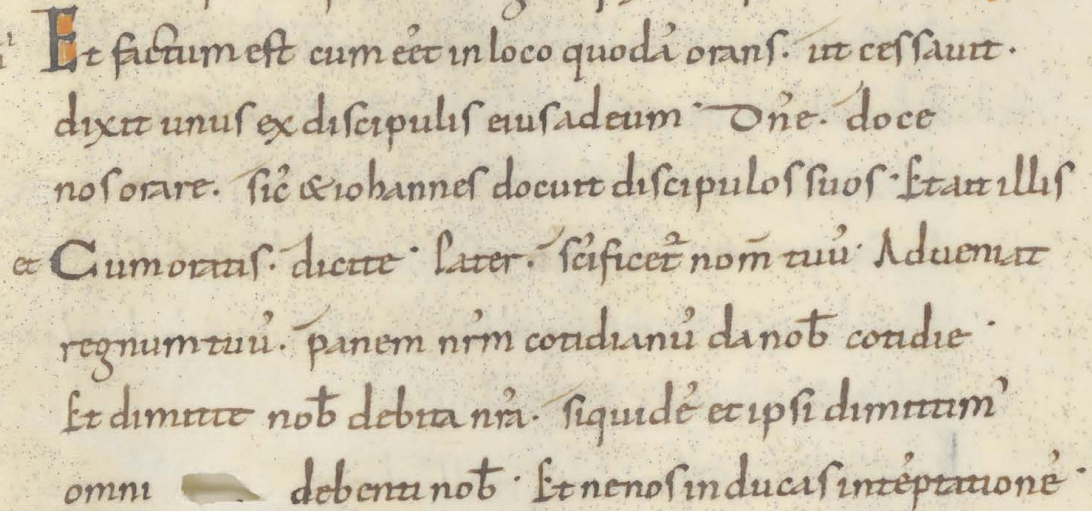 Et factum est cum eēt in loco quodā orans. ut cessauit.
dixit unus ex discipulis eius ad eum · Dn̄e. doce
nos orare. sic̄ & iohannes docuit discipulos suos · Et ait illis
et Cum oratis. dicite · Pater. sc̄ificet᷑ nom̄ tuū · Adueniat
regnum tuū. panem nr̄m cotidianū da nob̄ cotidie ·
Et dimitte nob̄ debita nr̄a. siquidē et ipsi dimittim᾽
omni debenti nob̄ · Et ne nos inducas in tēptationē ·